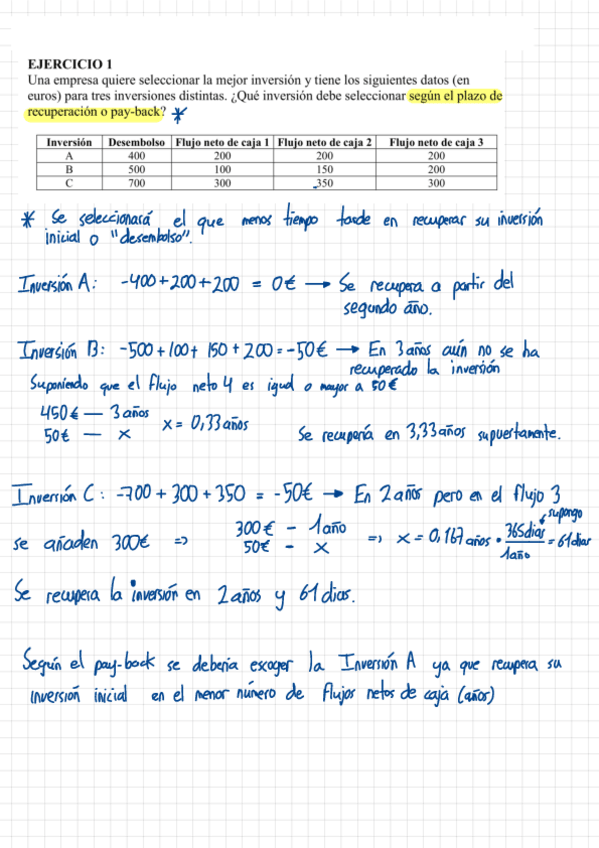 EJERCICIO 1
Una empresa quiere seleccionar la mejor inversión y tiene los siguientes datos (en
euros) para tres inversiones distintas. ¿Qué inversión debe seleccionar según el plazo de
recuperación o pay-back? *
Inversión Desembolso Flujo neto de caja 1 Flujo neto de caja 2 Flujo neto de caja 3
A 400 200 200 200
B 500 100 150 200
C 700 300 350 300
* Se seleccionará el que menos tiempo tarde en recuperar su inversión
inicial o "desembolso".
Inversión A: -400+200+200 = 0€ → Se recupera a partir del
segundo año.
Inversión B: -500+100+150+200=-50€ → En 3 años aún no se ha
recuperado la inversión
Suponiendo que el flujo neto 4 es igual o mayor a 50€
450€ — 3 años
50€ — x
x = 0,33 años
Se recuparía en 3,33 años supuestamente.
Inversión C: -700 + 300 + 350 = -50€ → En 2 años pero en el flujo 3
se añaden 300€ => 300€ - 1 año
50€ - x
=> x = 0,167 años · 365 dias / 1 año = 61 dias
supongo
Se recupera la inversión en 2 años y 61 dias.
Según el pay-back se deberia escoger la Inversión A ya que recupera su
inversión inicial en el menor número de flujos netos de caja (años)